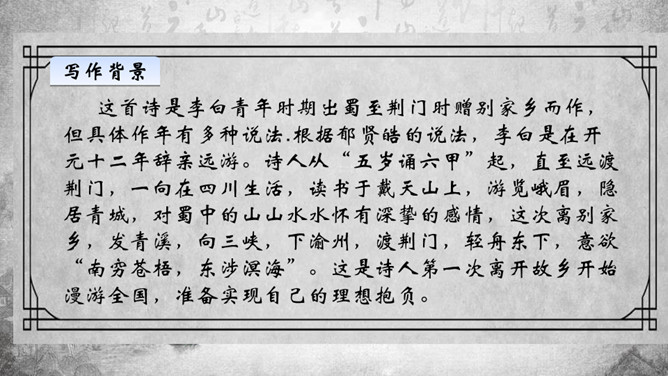 写作背景
这首诗是李白青年时期出蜀至荆门时赠别家乡而作，
但具体作年有多种说法.根据郁贤皓的说法，李白是在开
元十二年辞亲远游。诗人从“五岁诵六甲”起，直至远渡
荆门，一向在四川生活，读书于戴天山上，游览峨眉，隐
居青城，对蜀中的山山水水怀有深挚的感情，这次离别家
乡，发青溪，向三峡，下渝州，渡荆门，轻舟东下，意欲
“南穷苍梧，东涉溟海”。这是诗人第一次离开故乡开始
漫游全国，准备实现自己的理想抱负。